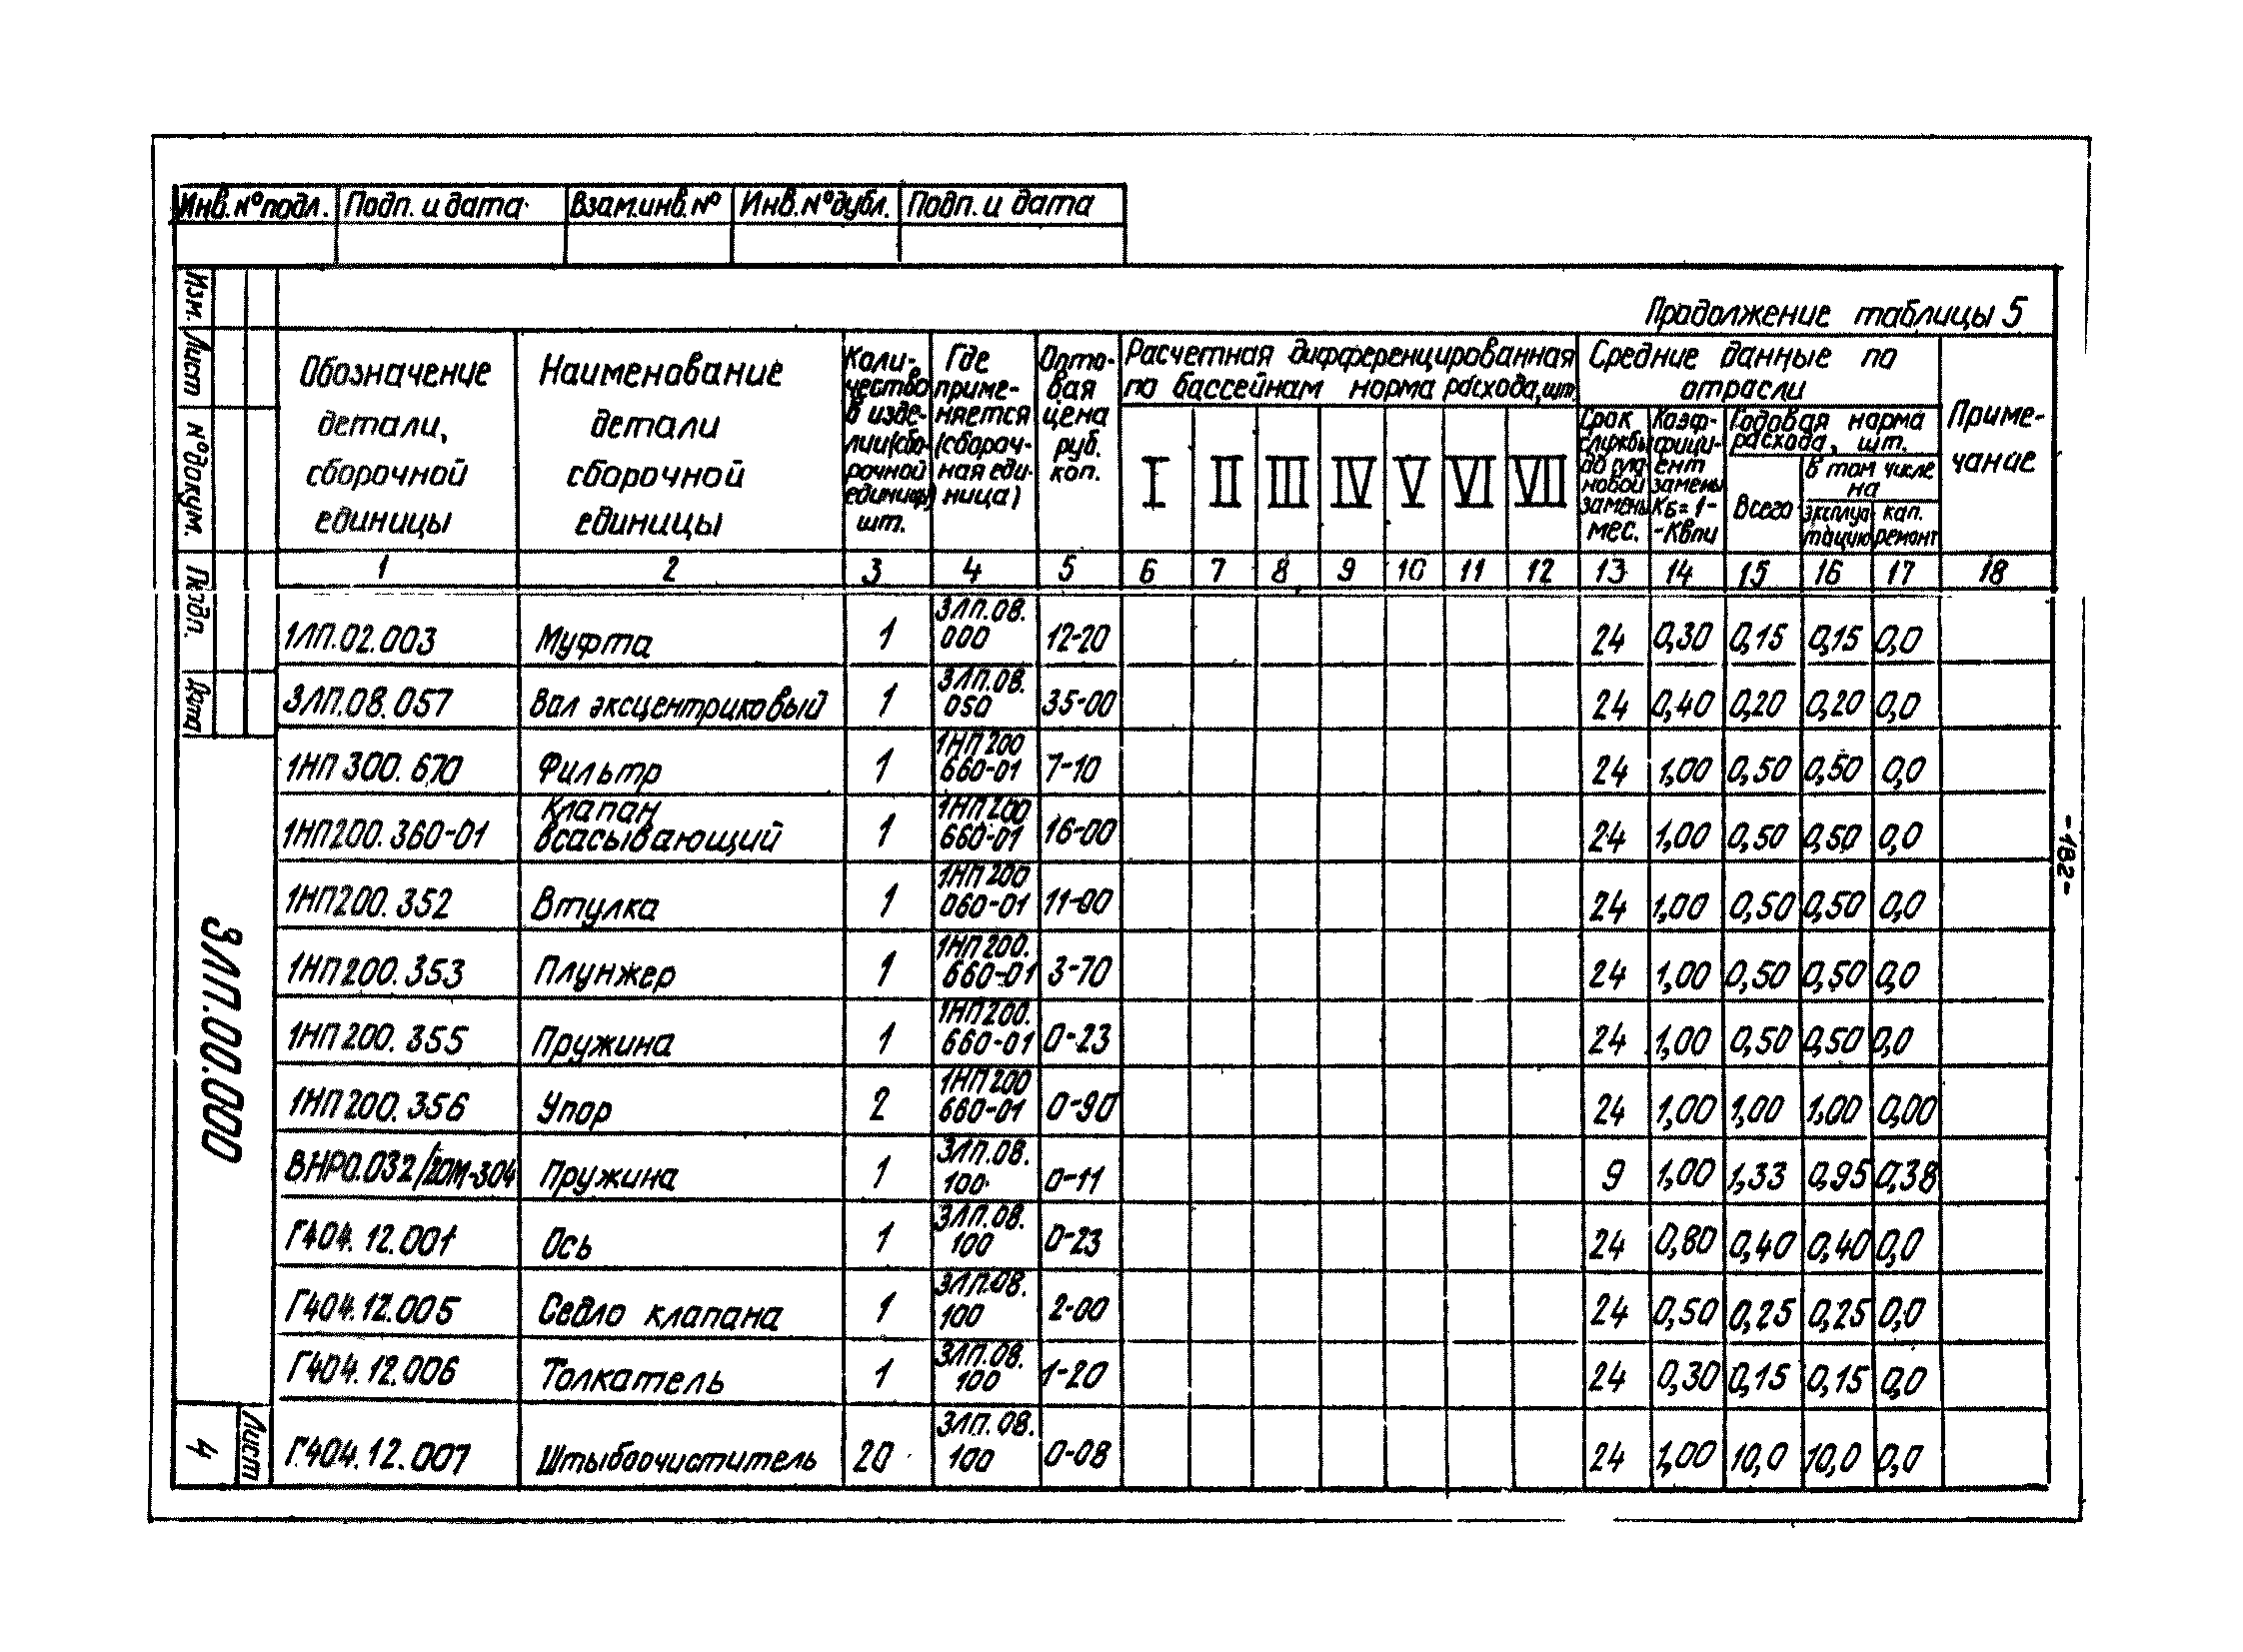 Инв.№подл. Подп. и дата Взам.инв.№ Инв.№дубл. Подп. и дата
Продолжение таблицы 5
Обозначение детали, сборочной единицы
Наименование детали сборочной единицы
Количество в изделии(сборочной единицы) шт.
Где применяется (сборочная единица)
Оптовая цена руб. коп.
Расчетная дифференцированная по бассейнам норма расхода,шт.
I II III IV V VI VII
Средние данные по отрасли
Срок службы до плановой замены мес.
Коэффициент замены Кб=1--Квпи
Годовая норма расхода, шт.
Всего
В том числе на
эксплуатацию
кап. ремонт
Примечание
1 2 3 4 5 6 7 8 9 10 11 12 13 14 15 16 17 18
1ЛП.02.003 Муфта 1 3ЛП.08.000 12-20 24 0,30 0,15 0,15 0,0
3ЛП.08.057 Вал эксцентриковый 1 3ЛП.08.050 35-00 24 0,40 0,20 0,20 0,0
1НП300.670 Фильтр 1 1НП200 660-01 7-10 24 1,00 0,50 0,50 0,0
1НП200.360-01 Клапан всасывающий 1 1НП200 660-01 16-00 24 1,00 0,50 0,50 0,0
1НП200.352 Втулка 1 1НП200 060-01 11-00 24 1,00 0,50 0,50 0,0
1НП200.353 Плунжер 1 1НП200.660-01 3-70 24 1,00 0,50 0,50 0,0
1НП200.355 Пружина 1 1НП200.660-01 0-23 24 1,00 0,50 0,50 0,0
1НП200.356 Упор 2 1НП200 660-01 0-90 24 1,00 1,00 1,00 0,00
ВНР0.032/20М-304 Пружина 1 3ЛП.08.100 0-11 9 1,00 1,33 0,95 0,38
Г404.12.001 Ось 1 3ЛП.08.100 0-23 24 0,80 0,40 0,40 0,0
Г404.12.005 Седло клапана 1 3ЛП.08.100 2-00 24 0,50 0,25 0,25 0,0
Г404.12.006 Толкатель 1 3ЛП.08.100 1-20 24 0,30 0,15 0,15 0,0
Г.404.12.007 Штыбоочиститель 20 3ЛП.08.100 0-08 24 1,00 10,0 10,0 0,0
Изм. Лист №докум. Подп. Дата
3ЛП.00.000
Лист
4
-182-